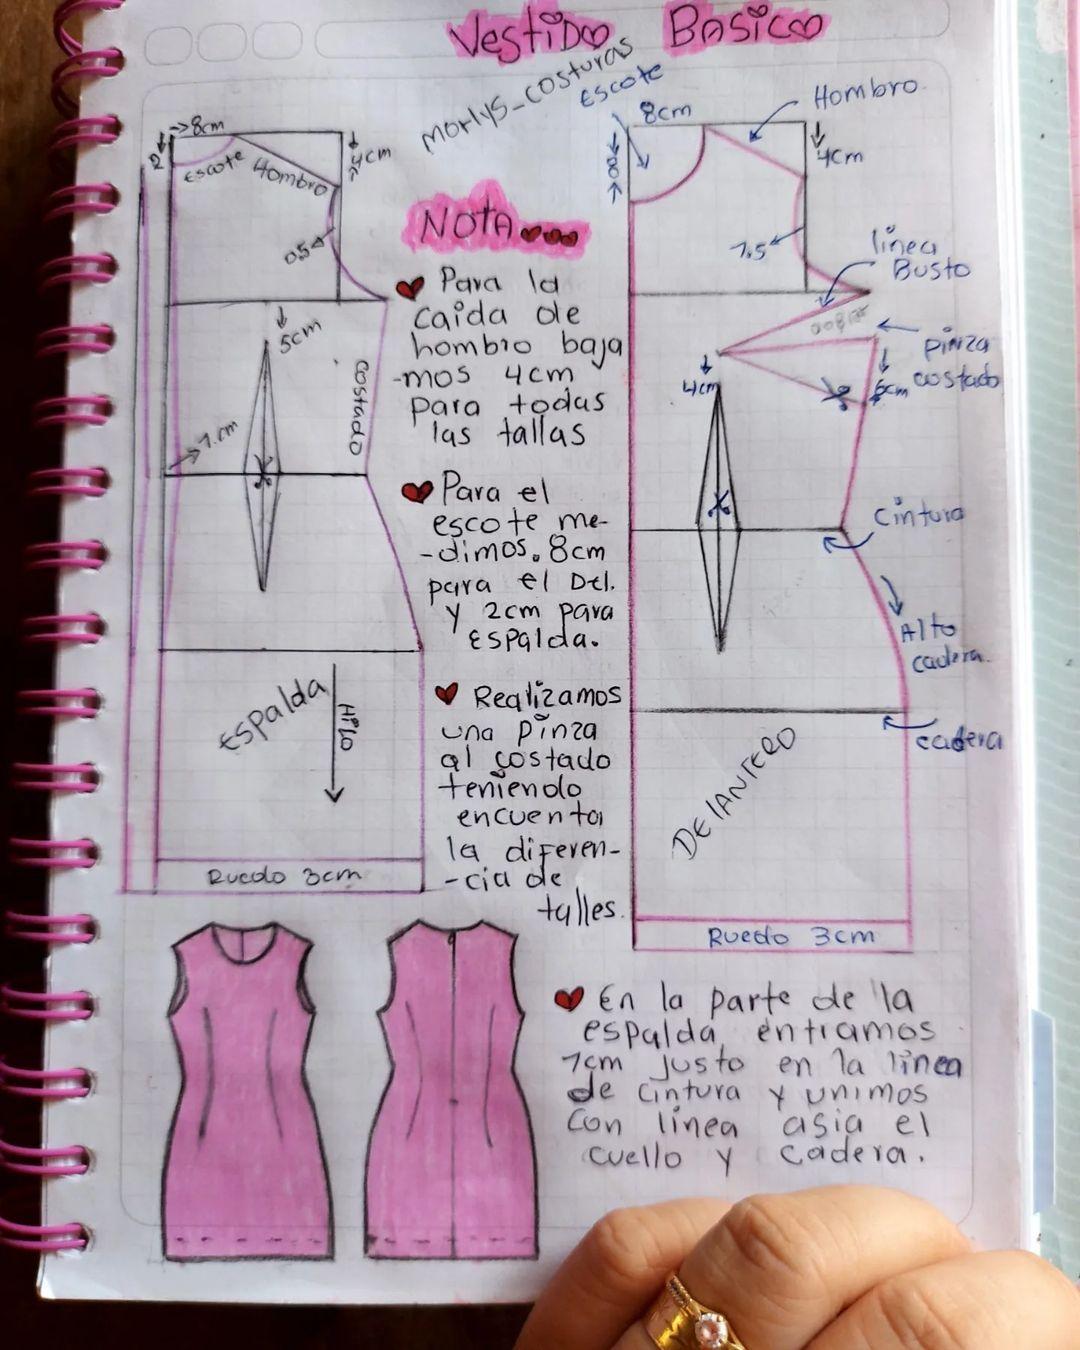 Vestido Basico
Morlys_costuras
8cm
2
4cm
Escote
Hombro
0.5
5cm
Costado
1.cm
Espalda
Hilo
Ruedo 3cm
Escote
8cm
8
Hombro
4cm
1.5
línea
Busto
Pinza
costado
4cm
Cintura
Alto
cadera.
cadera
DELANTERO
Ruedo 3cm
NOTA...
Para la
caida de
hombro baja
-mos 4cm
para todas
las tallas
Para el
escote me-
-dimos. 8cm
para el Del.
y 2cm para
Espalda.
Realizamos
una pinza
al costado
teniendo
encuenta
la diferen-
-cia de
talles.
En la parte de la
espalda, entramos
1cm justo en la línea
de cintura y unimos
con línea asia el
cuello y cadera.